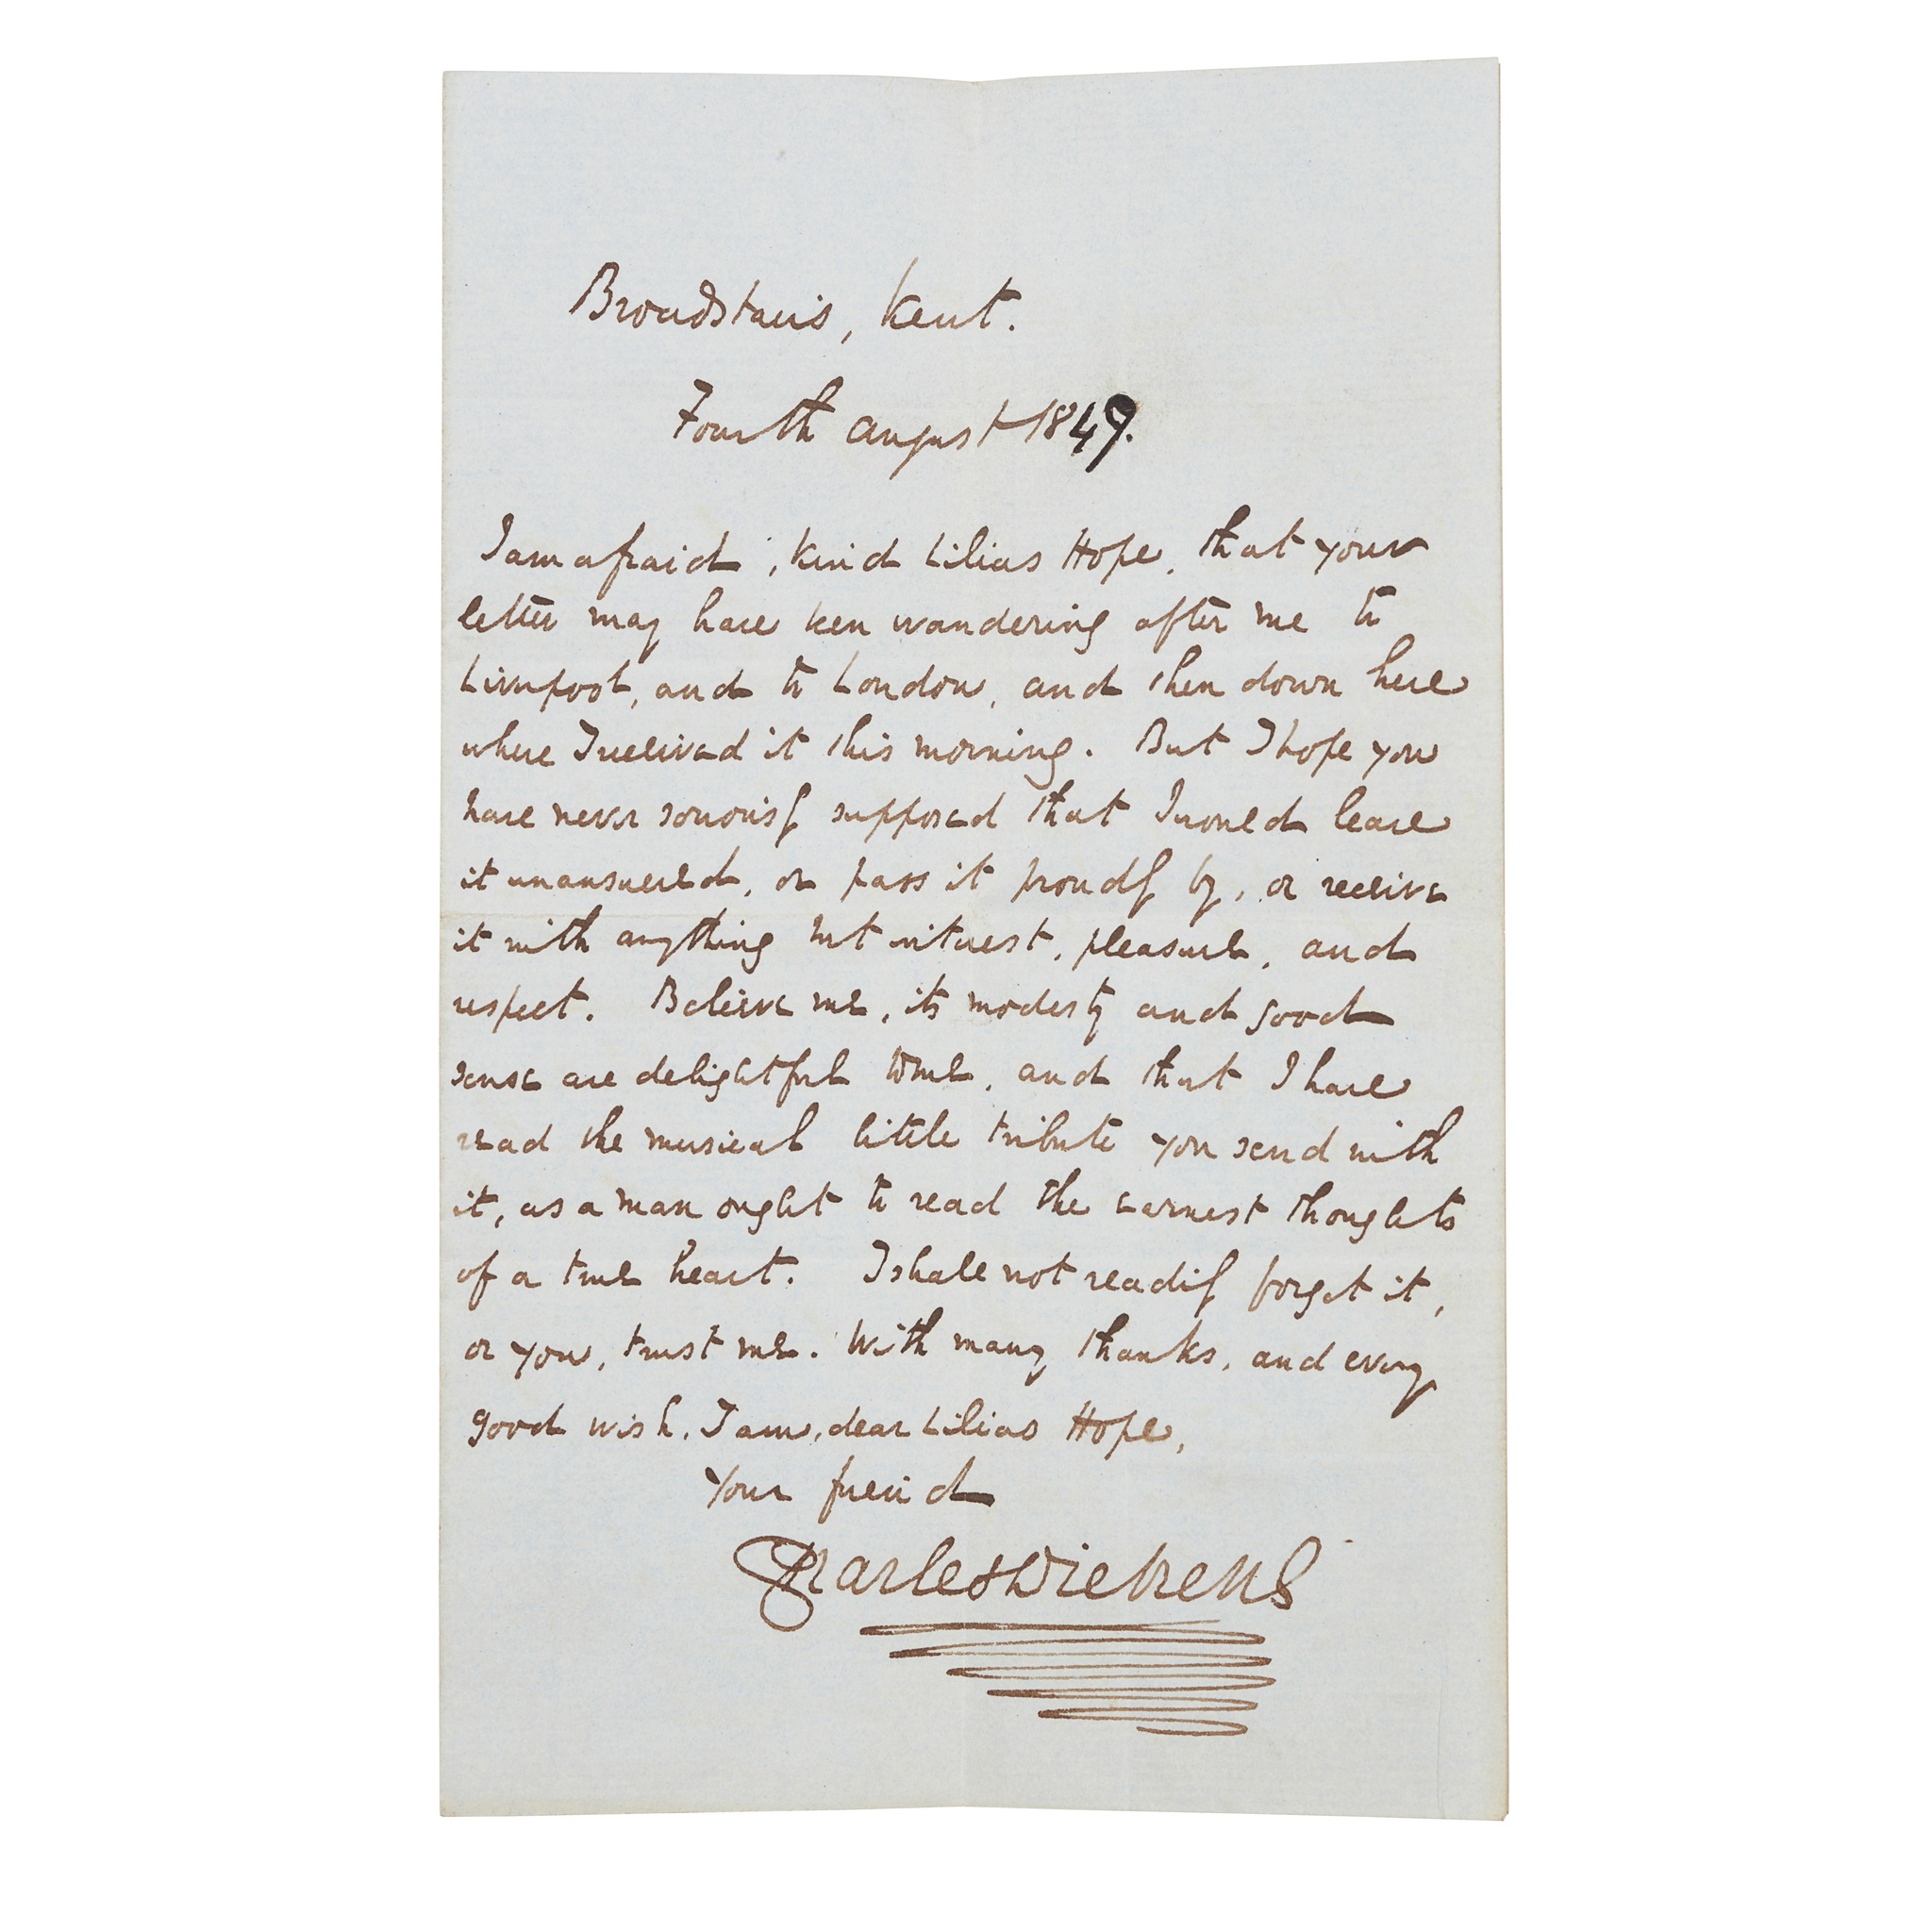 Broadstairs, Kent.
Fourth August 1849.
I am afraid, kind Lilias Hope, that your
letter may have been wandering after me to
Liverpool, and to London, and then down here
where I received it this morning. But I hope you
have never seriously supposed that I would leave
it unanswered, or pass it proudly by, or receive
it with anything but interest, pleasure, and
respect. Believe me, its modesty and good
sense are delightful to me, and that I have
read the musical little tribute you send with
it, as a man ought to read the earnest thoughts
of a true heart. I shall not readily forget it,
or you, trust me. With many thanks, and every
good wish, I am, dear Lilias Hope,
Your friend
Charles Dickens